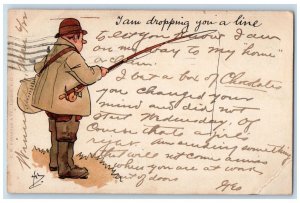 I am dropping you a line
to let you know I am
on my way to my "home"
again.
I bet a box of Chocolates
you changed your
mind and did not
Wednesday. Of
course that's a pri
am sending something
that will not come amiss
when you are at work
out of doors